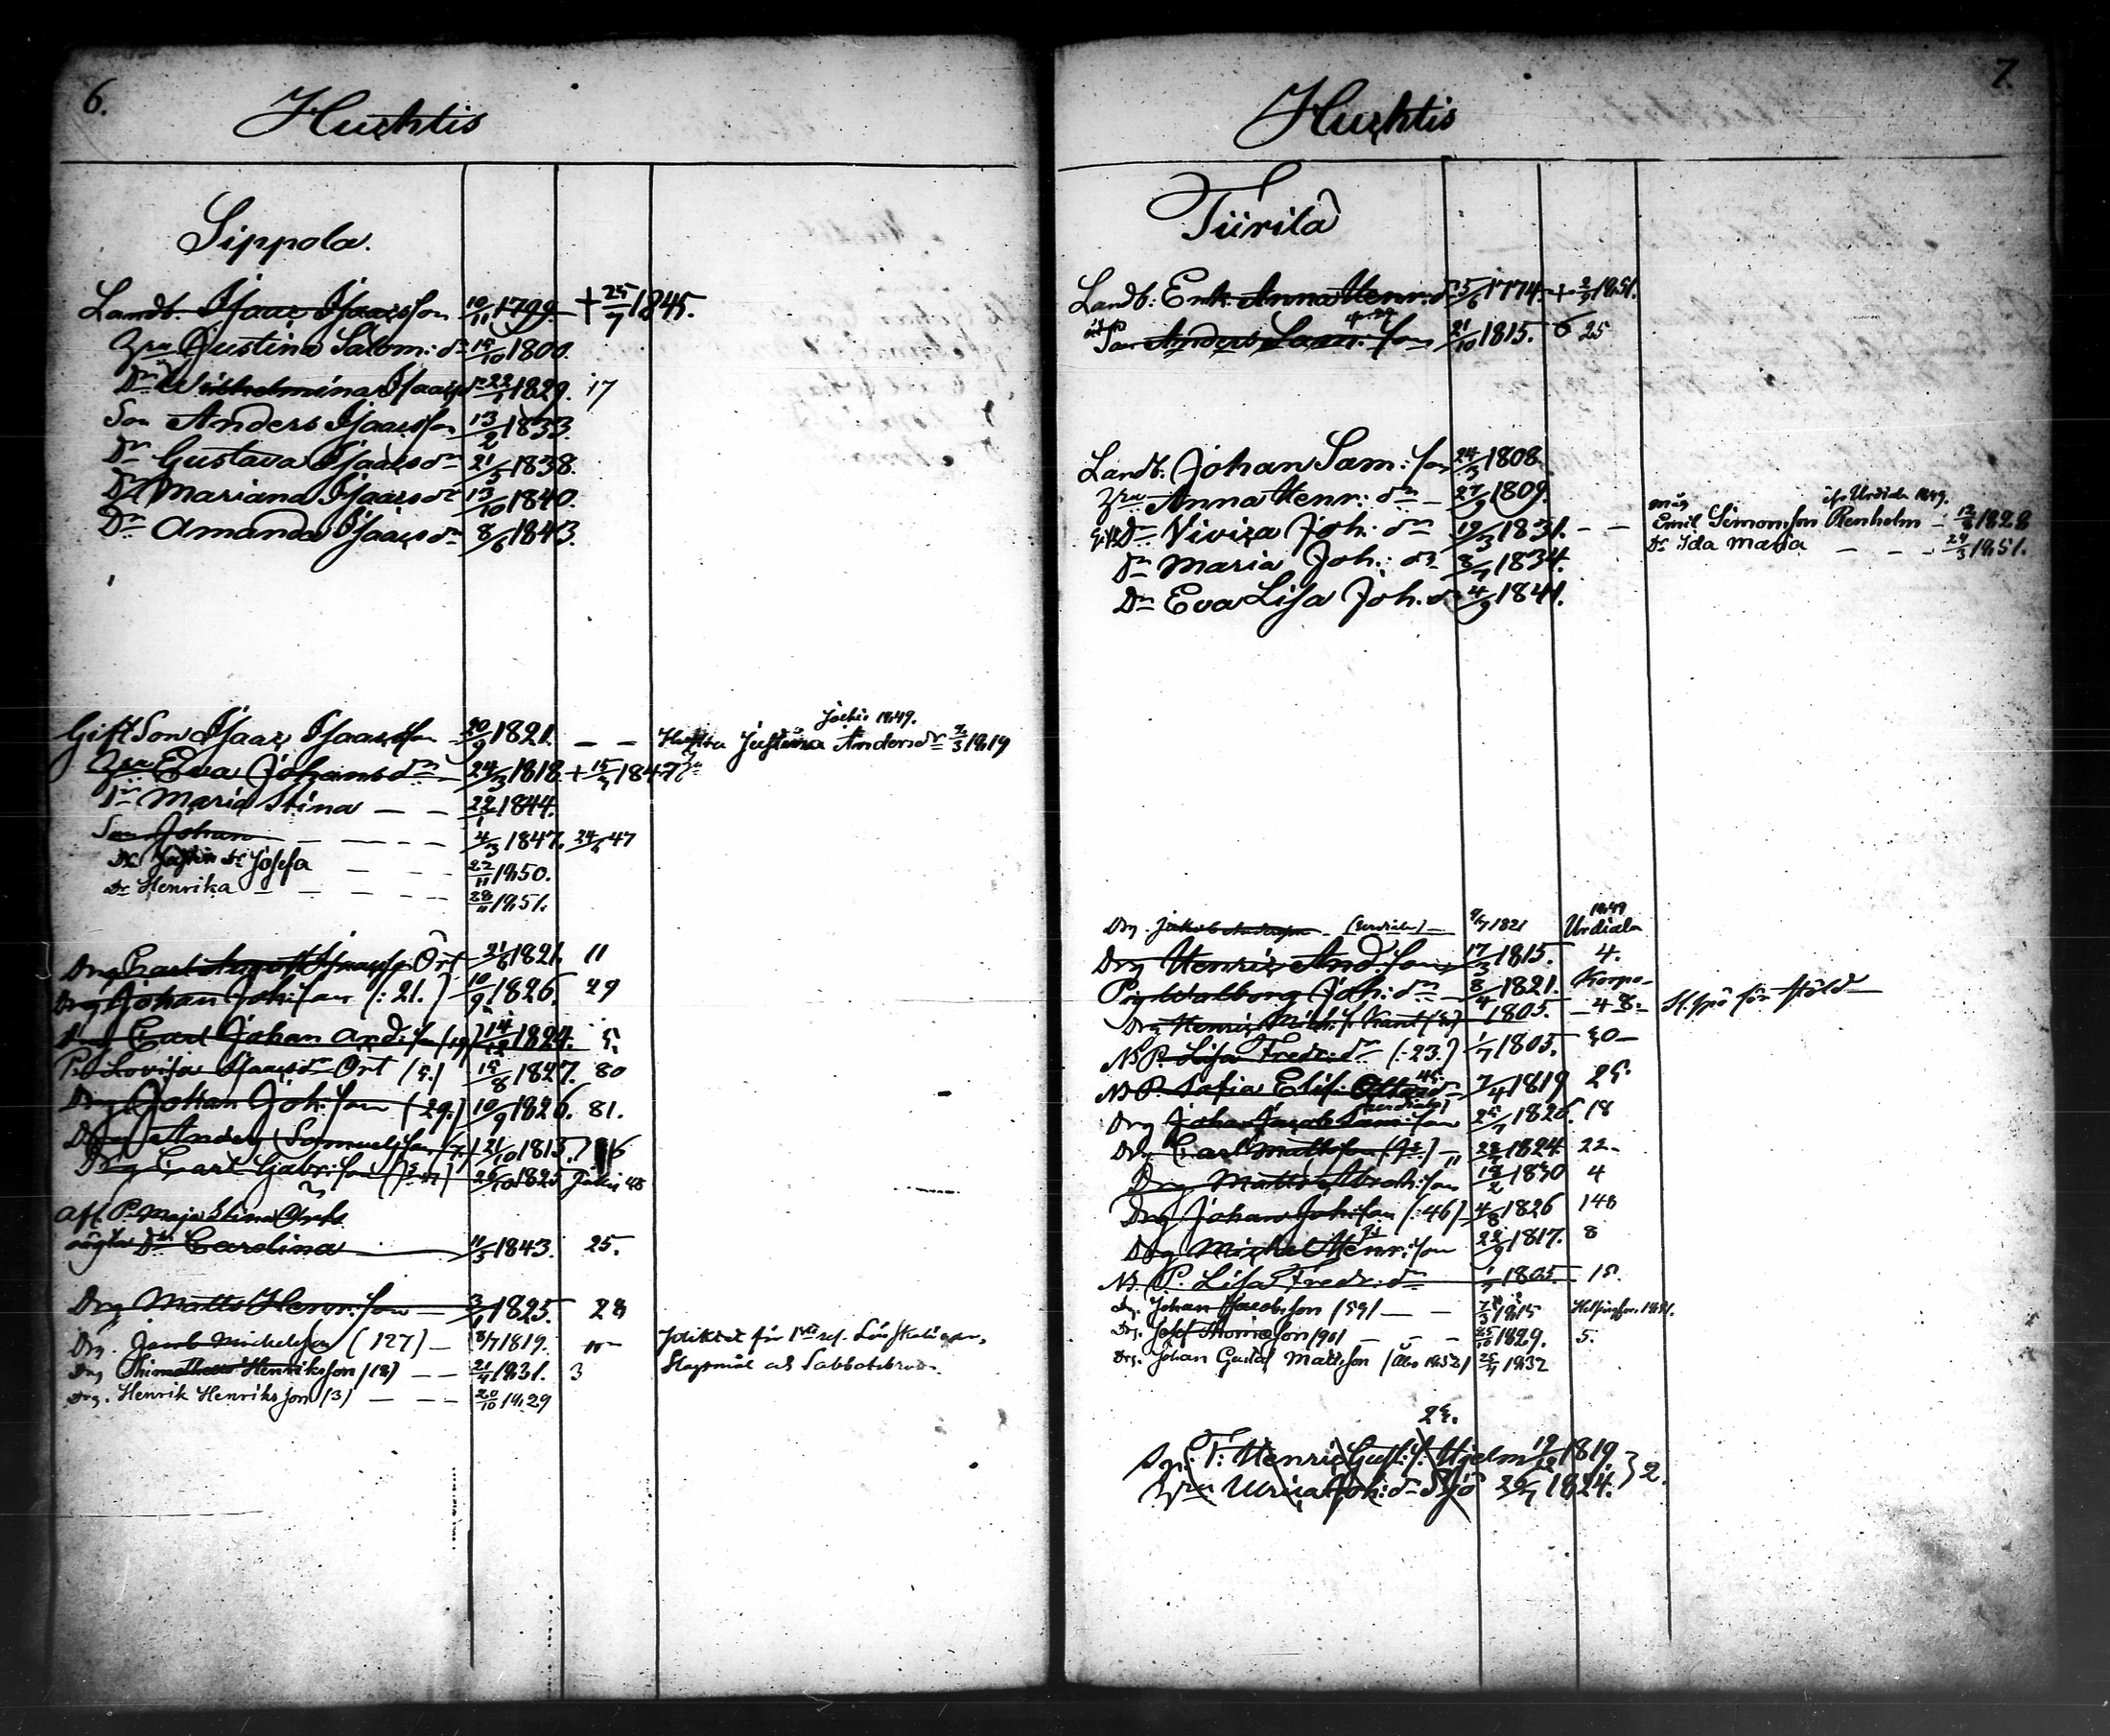 6.
Huchtis
Sippola.
Landb. Isaac Isaacsson 10/11 1799. + 25/7 1845.
Hru Justina Salom: dr 15/10 1800.
Dr Wilhelmina Isaacsdr 22/1 1829. 17
Son Anders Isaacsson 13/2 1833.
Dr Gustava Isaacsdr 21/5 1838.
Dr Mariana Isaacsdr 13/10 1840.
Dr Amanda Isaacsdr 8/6 1843.
Jockis 1849.
Gift Son Isaac Isaacsson 20/9 1821. — — Hustru Justina Andersdr 2/3 1819
Hru Eva Johansdr 24/3 1818. + 15/3 1847
Dr Maria Stina — — 22/1 1844.
Son Johan — — — 4/3 1847. 24/4 47
Dr Josefa — — 22/11 1850.
Dr Henrika — — — 28/11 1851.
Drg Carl August Ört 21/8 1821. 11
Drg Johan Joh: son (: 21.) 10/9 1826. 29
Drg Carl Johan And: son (19) 14/12 1824. 5.
P. Lovisa Isaacsdr Ört (5.) 15/8 1827. 80
Drg Johan Joh: son (29.) 10/9 1826. 81.
Drg Anders Samuelsson (7.) 21/10 1815. 7 6
Drg Carl Gabr: son 26/10 1825 Jockis 48
Afl. P. Maja Stina Örts
oägta Dr Carolina 11/5 1843. 25.
Drg Matts Henr: son — 3/1 1825. 28
Drg. Jacob Michelsson (127) — 8/7 1819.
Drg Thimotheus Henriksson (18) — — 21/4 1831. 3 Slagsmål och Sabbatsbrott
Drg. Henrik Henriksson (3) — — — 20/10 1829
7.
Huchtis
Tiirila
Landb: Enk. Anna Henr: dr 25/6 1774. + 2/3 1851.
Son Anders Sam: son 21/10 1815. 6 25
Landb. Johan Sam: son 24/3 1808.
Hru Anna Henr: dr — 27/9 1809.
måg
Urdiala 1849.
Gift Dr Vivica Joh: dr 19/3 1831. — — Emil Simonsson Renholm — 13/2 1828
Dr Maria Joh: dr 8/7 1834. Dr Ida Maria — — 24/3 1851.
Dr Eva Lisa Joh. dr 4/9 1841.
1849
Drg. Jakob Andersson (Urdiala) — 9/7 1821 Urdiala
Drg Henric And: son 17/3 1815. 4.
Pig Walborg Joh: dr 8/4 1821. Korpo
Drg Henric Mich: s. Kant 1805. 48 St. spö för stöld
NP. Lisa Fredr: dr (: 23.) 1/7 1805. 30
N P. Sofia Elis. 7/4 1819 25.
(Urdiala)
Drg Johan Jacob Sam: son 25/7 1826. 18
Drg Carl Mattsson 1824 22
Drg Matts Abrah: son 18/2 1830 4
Drg Johan Joh: son (: 46) 4/8 1826 148
Drg Michel Henr: son 22/9 1817. 8
N. P. Lisa Fredr: dr 1/7 1805. 15.
Dr. Johan Jacobsson (59) — — 7/3 1815 Helsingfors 1851.
Drg. Josef Thomasson (90) — — — 25/10 1829. 5.
Drg. Johan Gustaf Mattsson (Åbo 1852) 25/4 1832
25.
T. Henric Gust: s. Hjelm 19/12 1819. } 2.
Hru Ulrica Joh: dr Sjö 26/7 1824.